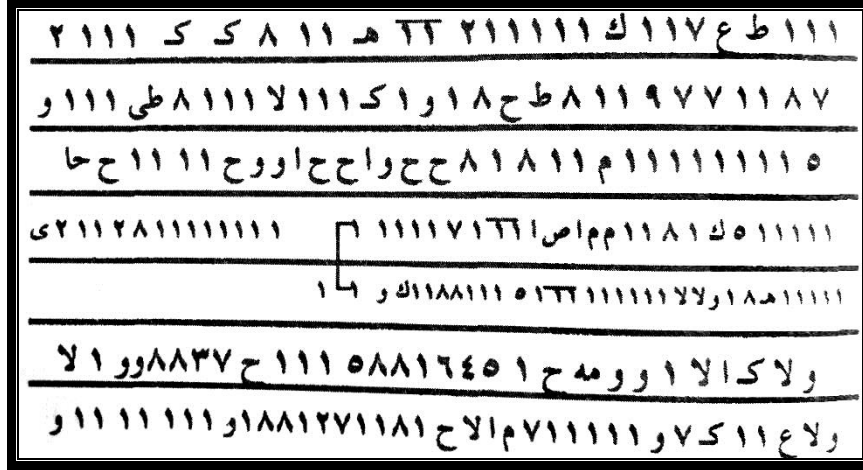 ١١١ ط ع ١١٧ ك ٢١١١١١١ ٦٦ هـ ١١ ٨ ك ك ١١١ ٢
٨٧ ١١ ٧٧ ٩ ١١ ٨ ط ح ١٨ و ١ ك ١١١ لا ١١١ ٨ طى ١١١ و
٥ ١١١١١١١١١ م ١١ ٨ ١ ٨ ححو احح اووح ١١ ١١ ح حا
١١١١١ ٥ ك ١١٨١ مم اص ١٦٦ ١٧١١١١ ١ ١١١١١١١١١١٨٢ ١١٢ى
١١١١١هـ ١٨ ولالا ١١١١١١١ ٦٦ ١٥ ١١١٨٨١١ك و ١ ١
ولا ك الا ١ و و مه ح ١ ٥٤٦١٨٨٥ ١١١ ح ٧٣٨٨وو ١ لا
ولا ع ١١ ك ٧ و ١١١١١٧ م الا ح ١١٨١ ١٧٢ ١٨٨١و ١١١ ١١ ١١ و